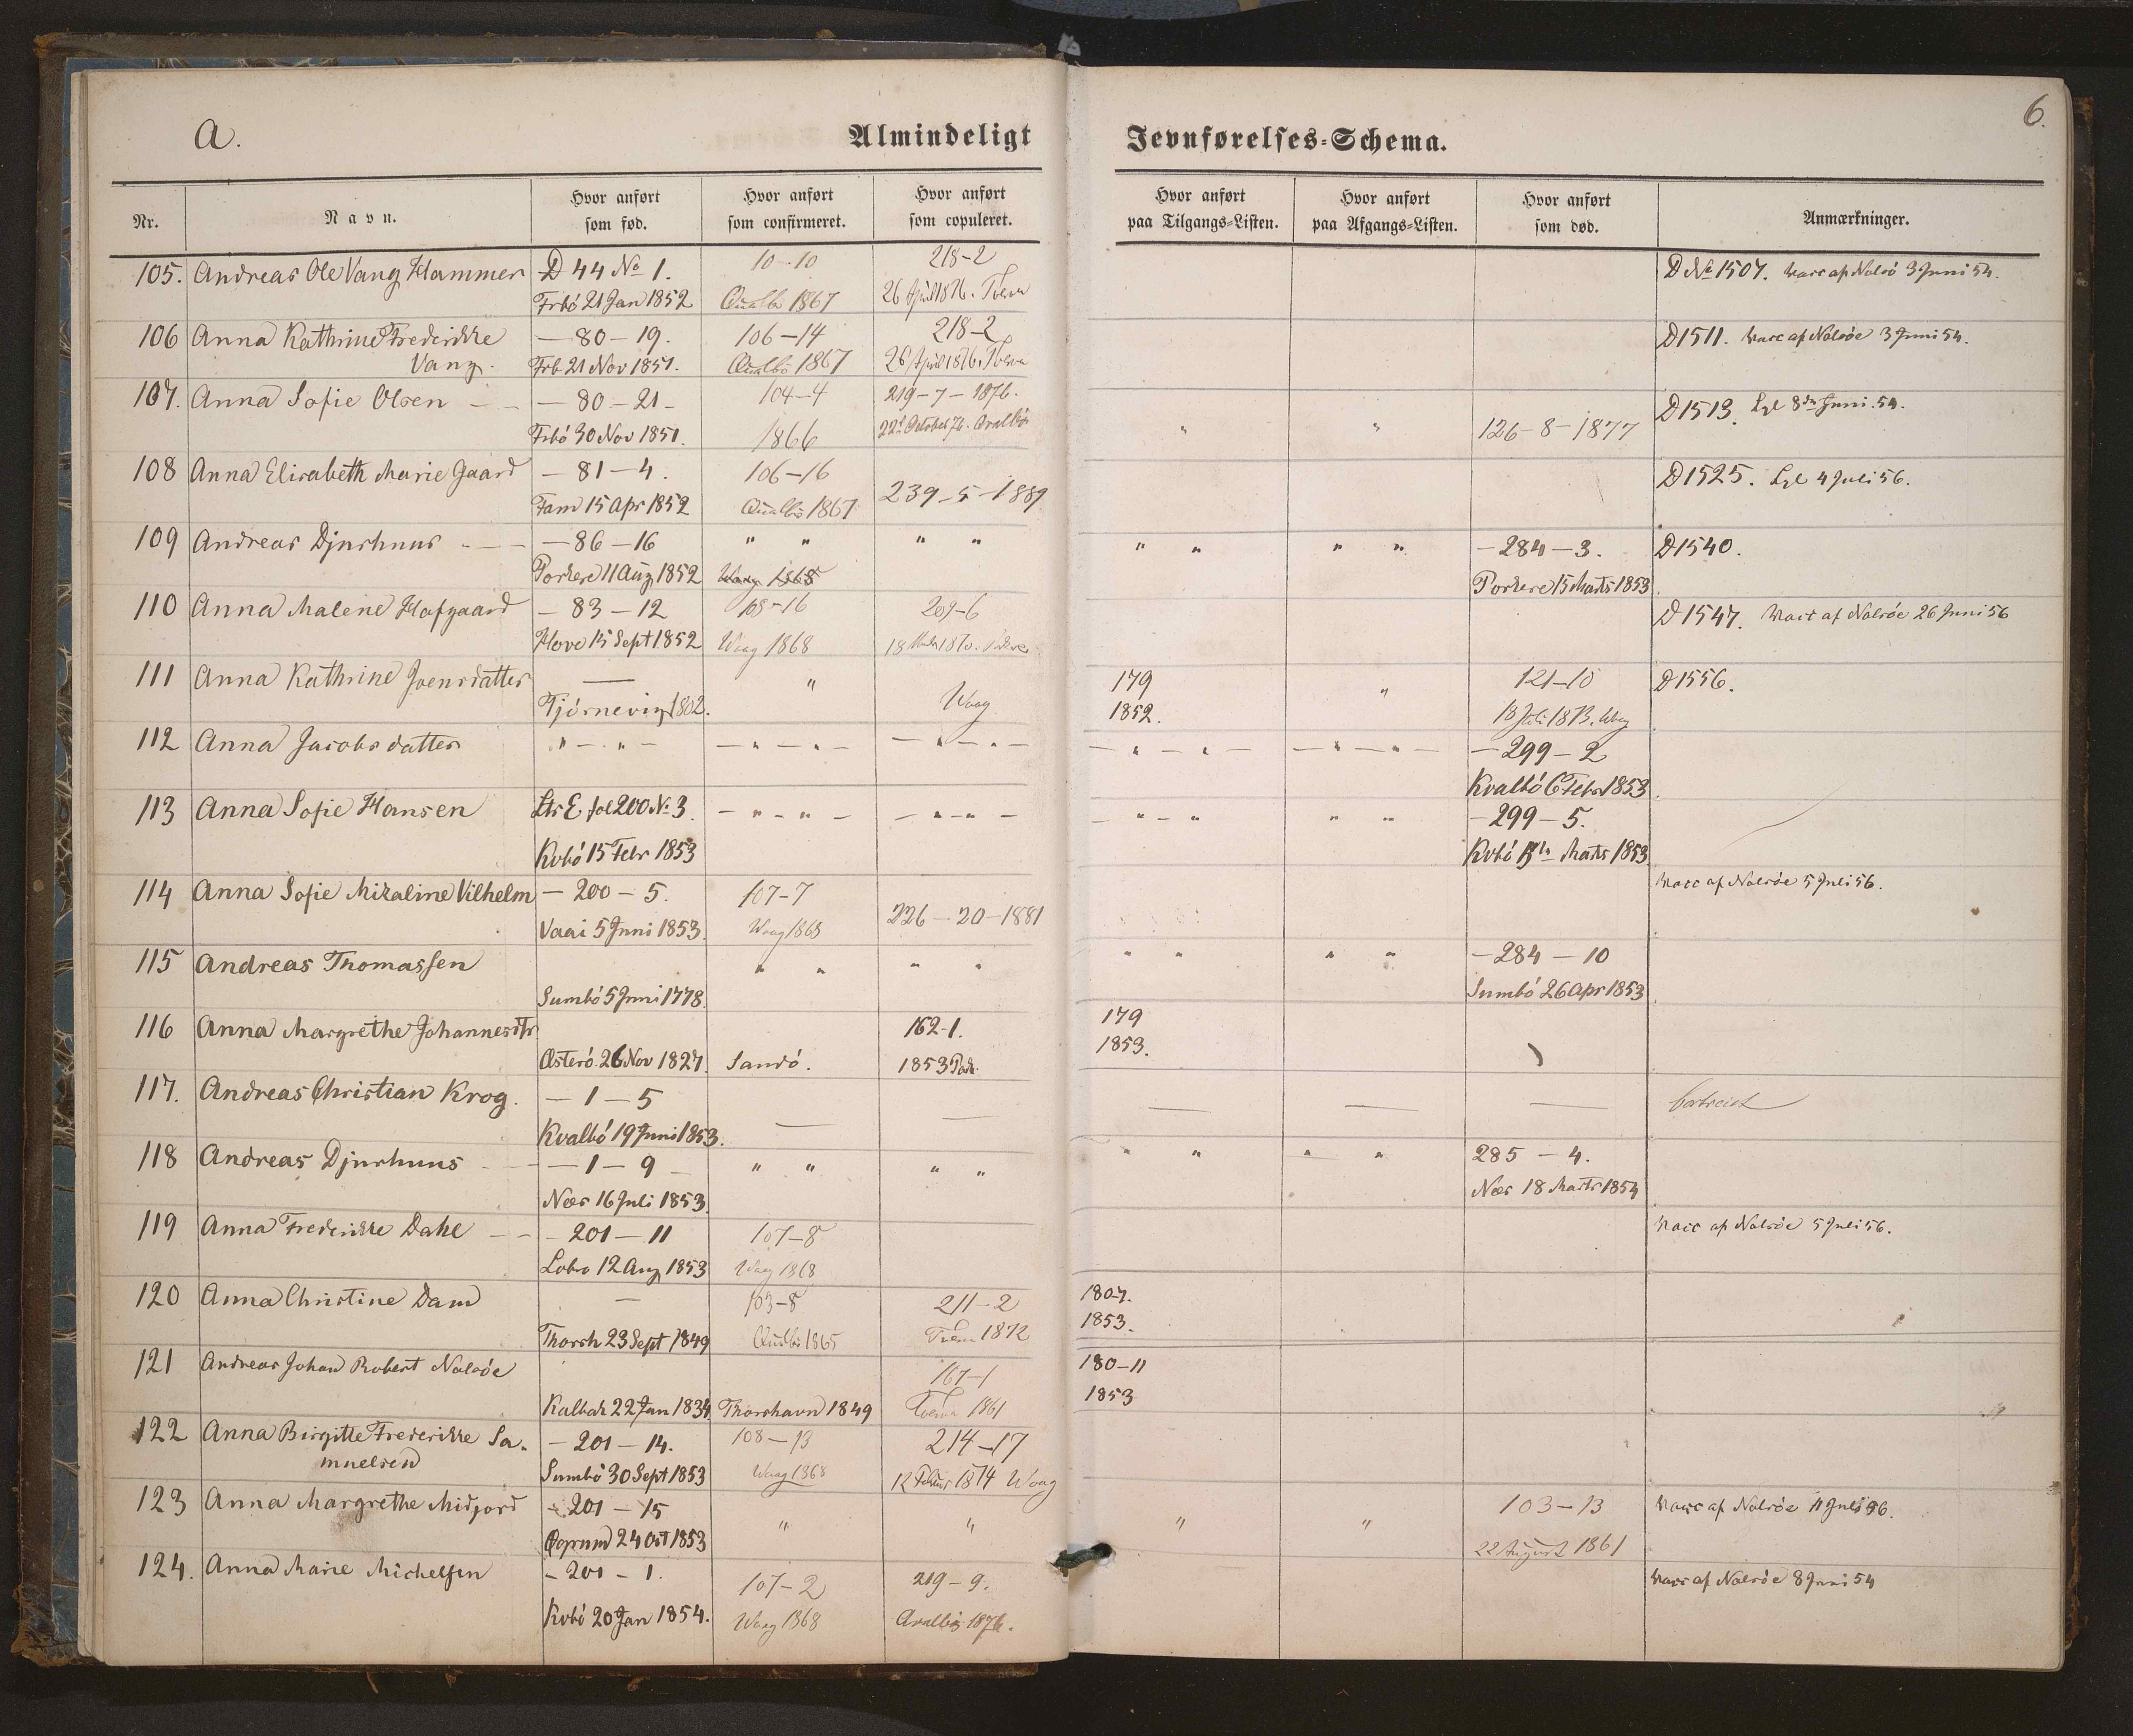 A.
Almindeligt Jevnførelses-Schema.
6.
Nr.
Navn.
Hvor anført som fød.
Hvor anført som confirmeret.
Hvor anført som copuleret.
Hvor anført paa Tilgangs-Listen.
Hvor anført paa Afgangs-Listen.
Hvor anført som død.
Anmærkninger.
105. Andreas Ole Vang Hammer D 44 No 1. 10-10 218-2 D No 1507. Vacc af Nolsö 3 Juni 54.
Frbó 21 Jan 1852 Qualbö 1867 26 April 1876. Tveraa
106 Anna Kathrine Frederikke — 80 — 19. 106-14 218-2 D 1511. Vacc af Nolsöe 3 Juni 54.
Vang. Frb 21 Nov 1851. Qualbö 1867 26 April 1876. Tveraa
107. Anna Sofie Olsen — — — 80 — 21 — 104-4 219-7-1876. " " 126-8-1877 D 1513. 8de Juni. 54.
Frbó 30 Nov 1851. 1866 22d October 76.
108 Anna Elisabeth Marie Gaard — 81 — 4. 106-16 239-5-1889 D 1525. 4 Juli 56.
Fam 15 Apr 1852 Qualbö 1867
109 Andreas Djurhuus — — — 86 — 16 " " " " " " " " — 284 — 3. D 1540.
Porkere 11 Aug 1852 Waag 1868 Porkere 15 Marts 1853
110 Anna Malene Hofgaard — 83 — 12 108-16 209-6 D 1547. Vacc af Nolsöe 26 Juni 56
Hove 15 Sept 1852 Waag 1868
111 Anna Kathrine Joensdatter — " Waag 179 " 121-10 D 1556.
Tjörnevig 1802. 1852. 18 Juli 1873. Waag
112 Anna Jacobsdatter " — " — — " — " — — " — " — — " — " — — " — " — — 299 — 2
Kvalbó 6 Febr 1853
113 Anna Sofie Hansen Ltr E fol 200 No 3. — " — " — — " — " — — " — " " " — 299 — 5.
Kvbó 15 Febr 1853 Kvbó Marts 1853
114 Anna Sofie Mikaline Vilhelm — 200 — 5. 107-7 226-20-1881 Vacc af Nolsöe 5 Juli 56.
Vaai 5 Juni 1853. Waag 1868
115 Andreas Thomassen " " " " " " " " — 284 — 10
Sumbö 5 Juni 1778. Sumbó 26 Apr 1853
116 Anna Margrethe Johannesdtr 162-1. 179
Österö. 26 Nov 1827. Sandö. 1853 1853.
117. Andreas Christian Krog. — 1 — 5 — — — — — bortreist
Kvalbó 19 Juni 1853.
118 Andreas Djurhuus — 1 — 9 — " " " " " " " " 285 — 4.
Næs 16 Juli 1853. Næs 18 Marts 1854
119 Anna Frederikke Dahl — — — 201 — 11 107-8 Vacc af Nolsöe 5 Juli 56.
Lobra 12 Aug 1853 Waag 1868
120 Anna Christine Dam — 103-8 211-2 180-7.
Thorsh 23 Sept 1849 Qualbö 1865 1872 1853.
121 Andreas Johan Robert Nolsöe 167-1 180-11
Kalbak 22 Jan 1834 Thorshavn 1849 Tveraa 1861 1853
122 Anna Birgitte Frederikke Sa- — 201 — 14. 108-13 214-17
muelsen Sumbö 30 Sept 1853 Waag 1868 12 Februar 1874 Waag
123 Anna Margrethe Midjord — 201 — 15 " " " " 103-13 Vacc af Nolsöe 11 Juli 56.
24 Oct 1853 22 August 1861
124. Anna Marie Michelsen — 201 — 1. 107-2 219-9. Vacc af Nolsöe 8 Juni 54
Kvbó 20 Jan 1854. Waag 1868 1876.